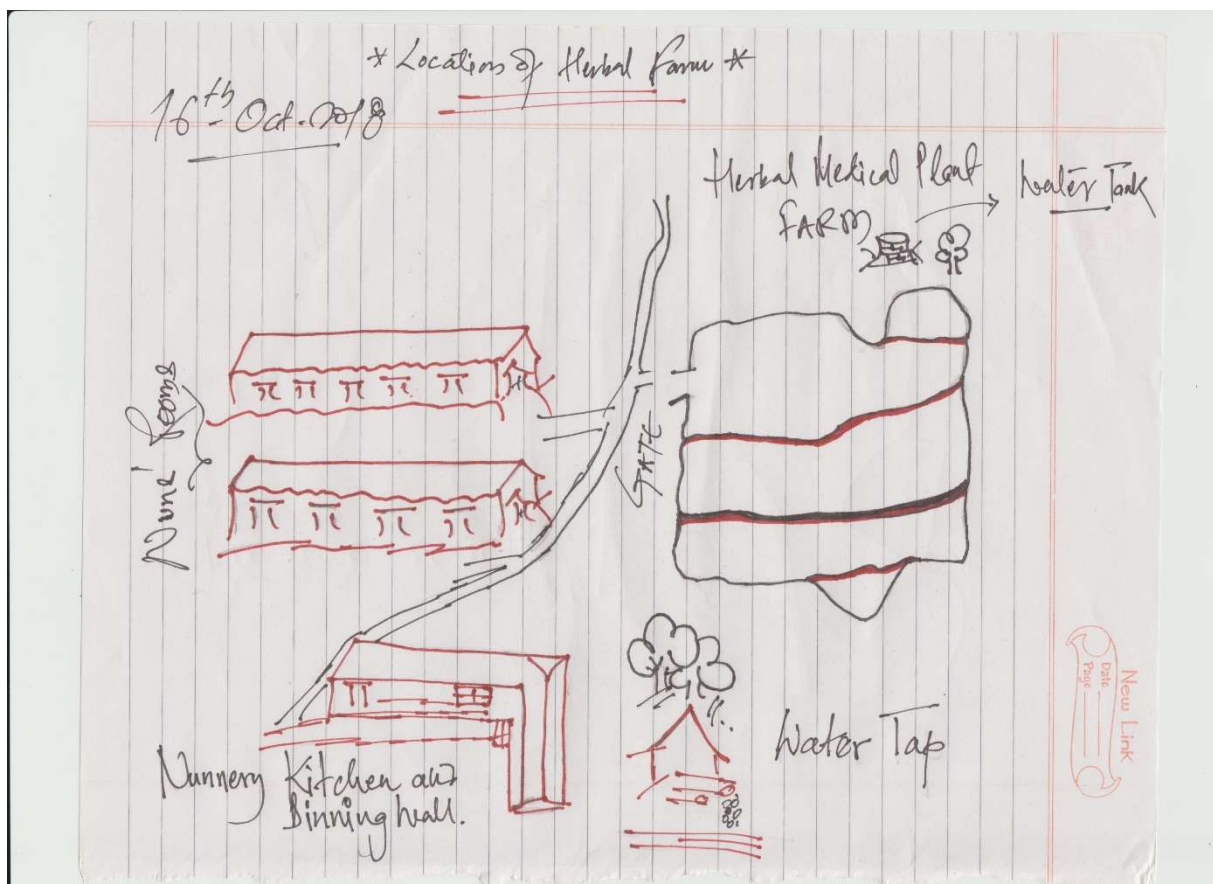 * Location of Herbal Farm *
16th Oct. 2018
Herbal Medical Plant
FARM
Water Tank
Nuns' Rooms
GATE
Nunnery Kitchen and
Dinning hall.
Water Tap
New Link
Date
Page